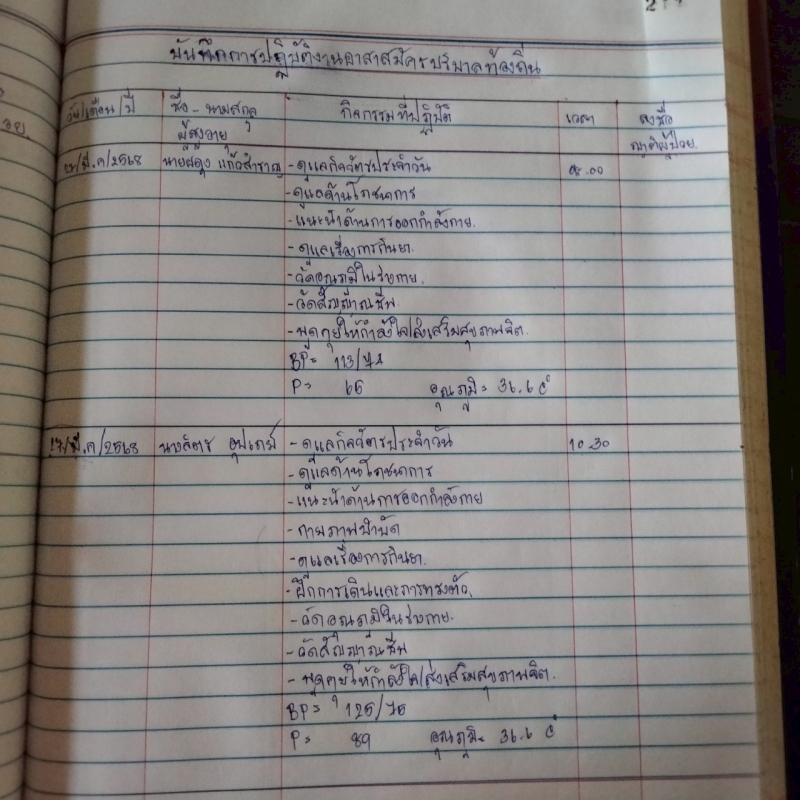 บันทึกการปฏิบัติงานอาสาสมัครบริบาลท้องถิ่น
วัน/เดือน/ปี ชื่อ - นามสกุล กิจกรรมที่ปฏิบัติ เวลา ลงชื่อ
ผู้สูงอายุ ญาติผู้ป่วย.
/มี.ค/2568 นายผดุง แก้วสำราญ - ดูแลกิจวัตรประจำวัน 08.00
- ดูแลด้านโภชนาการ
- แนะนำด้านการออกกำลังกาย.
- ดูแลเรื่องการกินยา.
- วัดอุณภูมิในร่างกาย.
- วัดสัญญาณชีพ.
- พูดคุยให้กำลังใจ/ส่งเสริมสุขภาพจิต.
BP= 113/72
P= 65 อุณภูมิ= 36.6 c°
17/มี.ค/2568 - ดูแลกิจวัตรประจำวัน 10.30
- ดูแลด้านโภชนาการ
- แนะนำด้านการออกกำลังกาย
- กายภาพบำบัด
- ดูแลเรื่องการกินยา.
- ฝึกการเดินและการทรงตัว.
- วัดอุณภูมิในร่างกาย.
- วัดสัญญาณชีพ
- พูดคุยให้กำลังใจ/ส่งเสริมสุขภาพจิต.
BP= 125/76
P= 89 อุณภูมิ= 36.6 c°